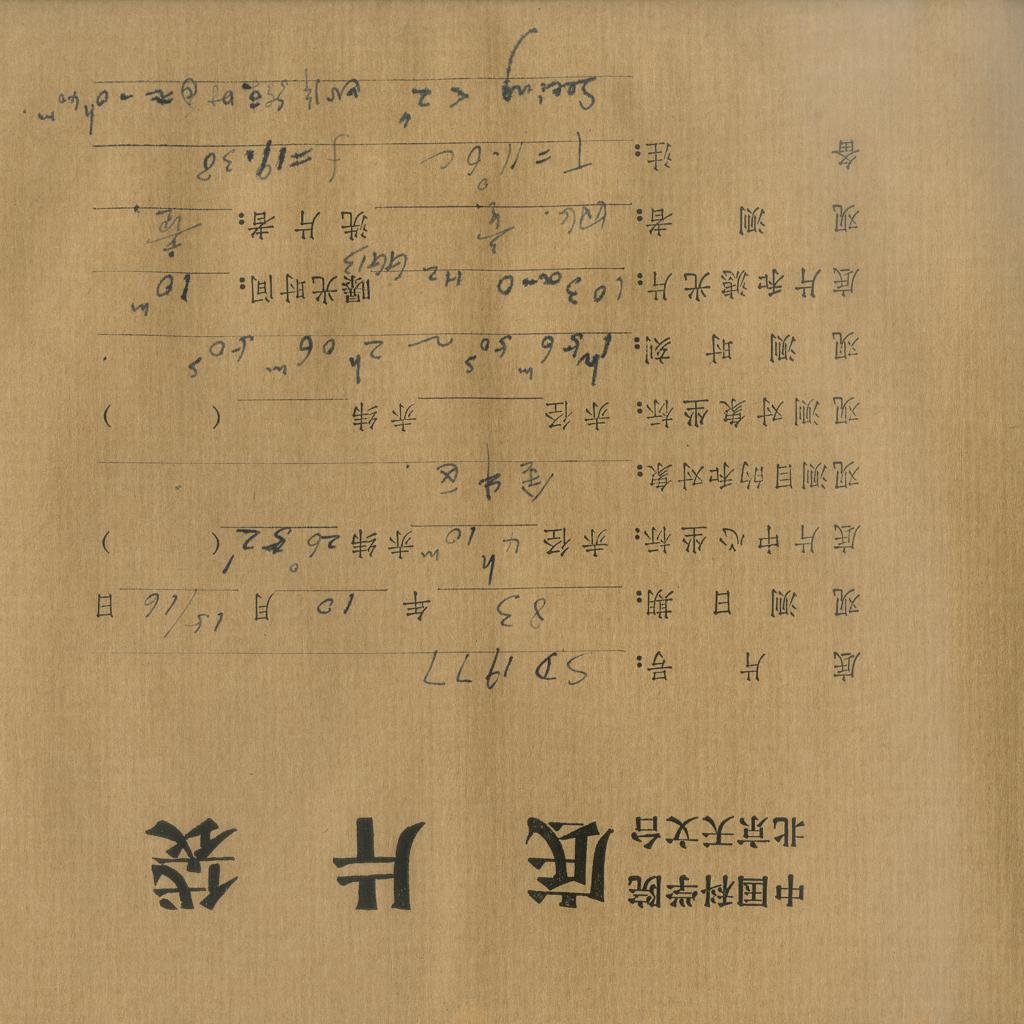 中国科学院
北京天文台
底 片 袋
底 片 号: SD 1977
观 测 日 期: 83 年 10 月 15/16 日
底片中心坐标: 赤径 4h 10m 赤纬 26° 52′ ( )
观测目的和对象:
观测对象坐标: 赤径 赤纬 ( )
观 测 时 刻: 1h 56m 50s ~ 2h 06m 50s
底片和滤光片: 103a-O H2 GG13 曝光时间: 10m
观 测 者: 洗 片 者:
备 注: T = 11.°6 C f = 19.38
Seeing < 2″